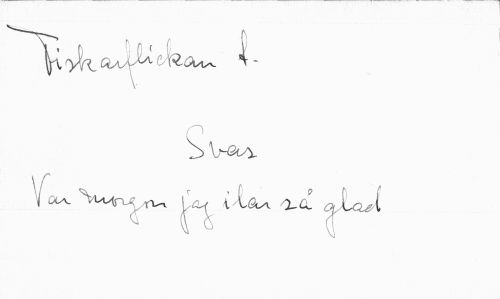 Fiskarflickan f.
Svar
Var morgon jag ilar så glad